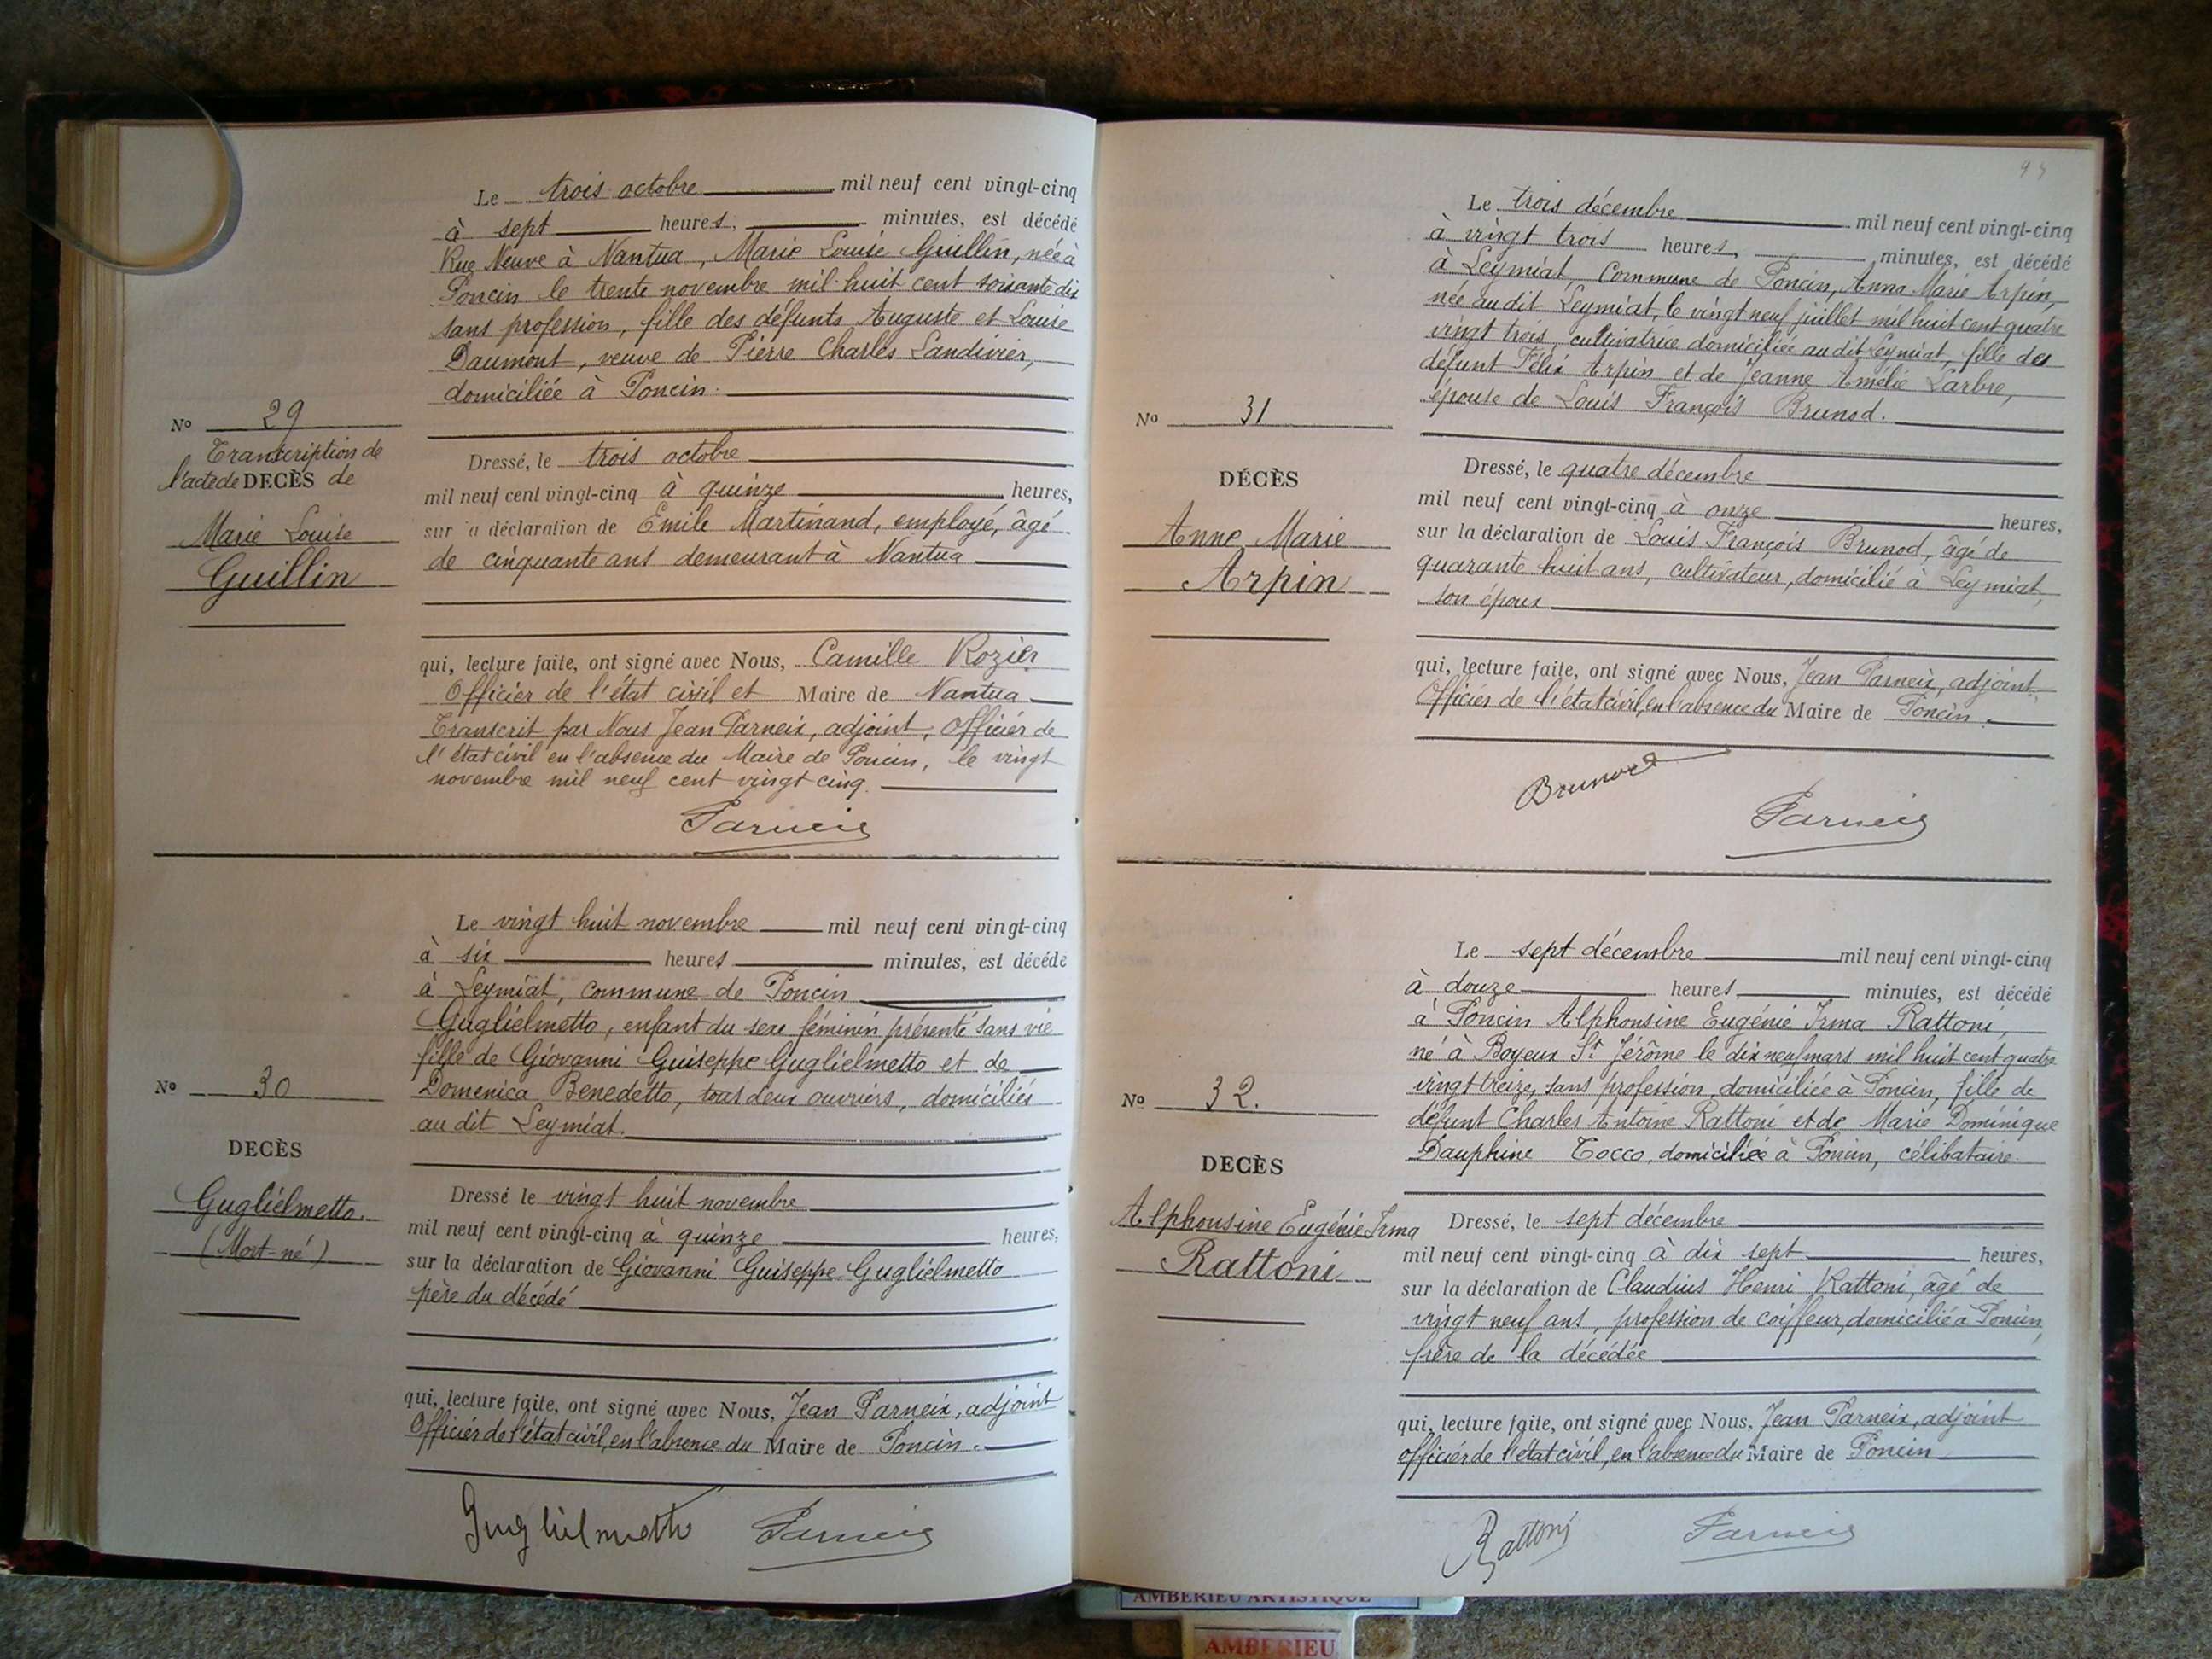 Le trois octobre mil neuf cent vingt-cinq
à sept heures, minutes, est décédé
Rue Neuve à Nantua, Marie Louise Guillin, née à
Poncin le trente novembre mil huit cent soixante dix
sans profession, fille des défunts Auguste et Louise
Daumont, veuve de Pierre Charles Landivier,
domiciliée à Poncin.
No 29
Transcription de
l'acte de DECÈS de
Marie Louise
Guillin
Dressé, le trois octobre
mil neuf cent vingt-cinq à quinze heures,
sur a déclaration de Emile Martinand, employé, âgé
de cinquante ans demeurant à Nantua
qui, lecture faite, ont signé avec Nous, Camille Rozier
Officier de l'état civil et Maire de Nantua
Transcrit par Nous Jean Parneix, adjoint, Officier de
l'état civil en l'absence du Maire de Poncin, le vingt
novembre mil neuf cent vingt cinq.
Parneix
Le vingt huit novembre mil neuf cent vingt-cinq
à six heures minutes, est décédé
à Leymiat, commune de Poncin
Guglielmetto, enfant du sexe féminin présenté sans vie
fille de Giovanni Guiseppe Guglielmetto et de
Domenica Benedetto, tous deux ouvriers, domiciliés
au dit Leymiat.
No 30
DECÈS
Guglielmetto.
(Mort-né)
Dressé le vingt huit novembre
mil neuf cent vingt-cinq à quinze heures,
sur la déclaration de Giovanni Guiseppe Guglielmetto
père du décédé
qui, lecture faite, ont signé avec Nous, Jean Parneix, adjoint
Officier de l'état civil, en l'absence du Maire de Poncin.
Guglielmetto Parneix
Le trois décembre mil neuf cent vingt-cinq
à vingt trois heures, minutes, est décédé
à Leymiat, Commune de Poncin, Anna Marie Arpin,
née au dit Leymiat, le vingt neuf juillet mil huit cent quatre
vingt trois, cultivatrice domiciliée au dit Leymiat, fille des
défunt Félix Arpin et de Jeanne Amélie Larbre,
épouse de Louis François Brunod.
No 31
DÉCÈS
Anne Marie
Arpin
Dressé, le quatre décembre
mil neuf cent vingt-cinq à onze heures,
sur la déclaration de Louis François Brunod, âgé de
quarante huit ans, cultivateur, domicilié à Leymiat,
son époux
qui, lecture faite, ont signé avec Nous, Jean Parneix, adjoint
Officier de l'état civil, en l'absence du Maire de Poncin.
Brunod
Parneix
Le sept décembre mil neuf cent vingt-cinq
à douze heures minutes, est décédé
à Poncin Alphonsine Eugénie Irma Rattoni,
né à Boyeux St Jérôme le dix neuf mars mil huit cent quatre
vingt treize, sans profession, domiciliée à Poncin, fille de
défunt Charles Antoine Rattoni et de Marie Dominique
Dauphine Tocco, domiciliée à Poncin, célibataire.
No 32.
DECÈS
Alphonsine Eugénie Irma
Rattoni
Dressé, le sept décembre
mil neuf cent vingt-cinq à dix sept heures,
sur la déclaration de Claudius Henri Rattoni, âgé de
vingt neuf ans, profession de coiffeur, domicilié à Poncin,
frère de la décédée
qui, lecture faite, ont signé avec Nous, Jean Parneix, adjoint
officier de l'état civil, en l'absence du Maire de Poncin
Rattoni Parneix
AMBERIEU ARTISTIQUE
AMBERIEU